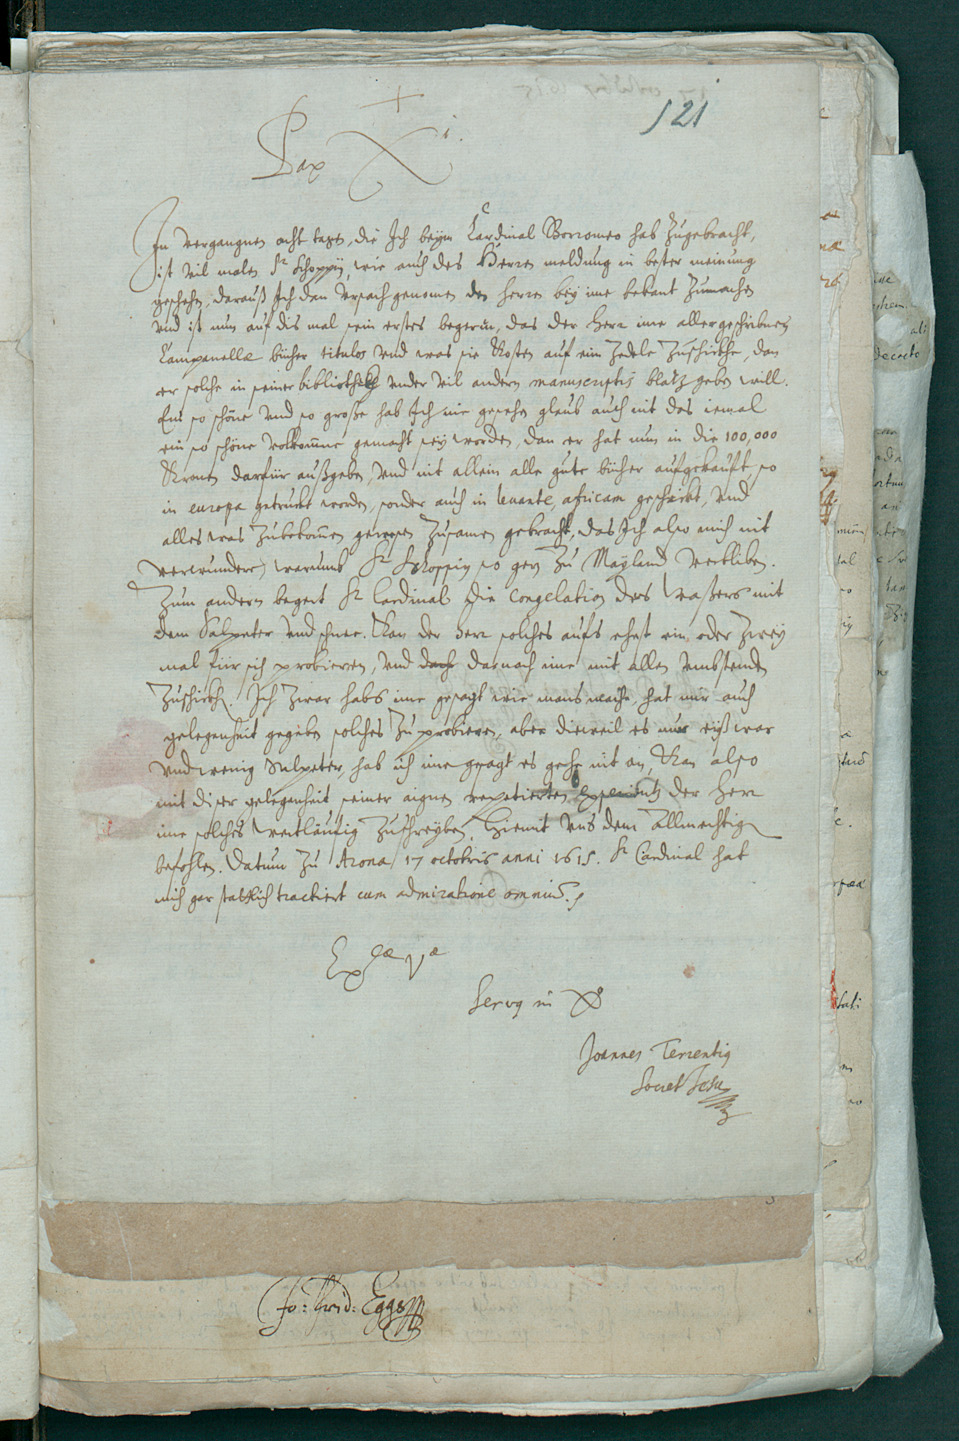 121
Pax Xi.
In vergangnen acht tagen, die Ich beym Cardinal Borromeo hab zugebracht,
ist vil malen Hr Schoppii, wie auch des Herren meldung in bester meinung
geschehen, darauß Ich dan ursach genomen den herren bey ime bekant zumachen
und ist nun auf dis mal sein erstes begeren, das der herr ime aller geschribnen
Campanellae bücher titulos und was sie kosten auf ein zedele zuschickhe, dan
er solche in seiner bibliothek under vil andern manuscriptis blatz geben will.
Ein so schöne und so große hab Ich nie gesehen glaub auch nit das iemal
ein so schöne volkomne gemacht sey worden, dan er hat nun in die 100,000
Kronen darfür außgeben, und nit allein alle gute bücher aufgekauft, so
in europa getruckt worden, sonder auch in levante, africam geschickt, und
alles was zubekomen gewesen zusamen gebracht, das Ich also mich nit
verwundere, warumb Hr Schoppius so gern zu Mayland verbliben.
Zum andern begert Hr Cardinal die congelation des Waßers mit
dem Salpeter und schnee. Kan der herr solches aufs ehest ein oder zwey
mal für sich probieren, und doch darnach ime mit allen umbstenden
zuschickhen. Ich zwar habs ime gesagt wie mans mache hat mir auch
gelegenheit gegeben solches zu probieren, aber dieweil es nur eiß war
und wenig Salpeter, hab ich ime gesagt es gehe nit an, Kan also
mit diser gelegenheit seiner aignen repetierten experientz der herr
ime solches weitläufig zuschreyben, hiemit uns dem Allmechtigen
befohlen. Datum zu Arona 17 octobris anni 1615. Hr Cardinal hat
mich gar stattlich tractiert cum admiratione omnium.
Exae Vae
Servus in Xo
Joannes Terrentius
Societ Jesu
Jo: Frid: Eggs